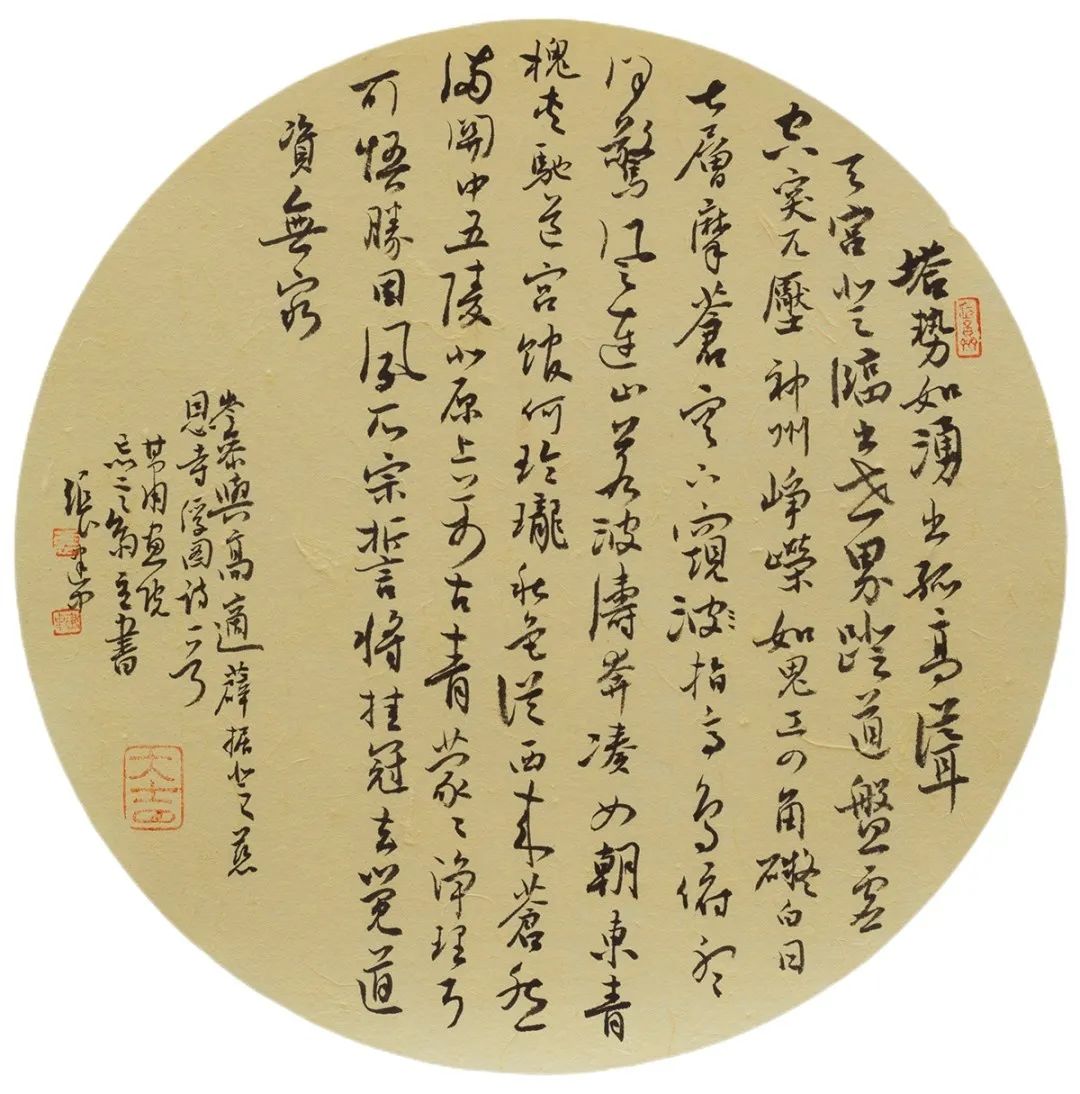 塔势如湧出孤高聳
天宮登臨出世界蹬道盤虛
空突兀壓神州崢嶸如鬼工四角礙白日
七層摩蒼穹下窺波指高鳥俯聽
聞驚風連山若波濤奔湊似朝東青
槐夾馳道宮館何玲瓏秋色從西来蒼然
滿關中五陵北原上万古青蒙々淨理了
可悟勝因夙所宗誓將挂冠去覺道
資無窮
岑參與高適薛據登慈
恩寺浮图詩一首
画院
之翁主書
張